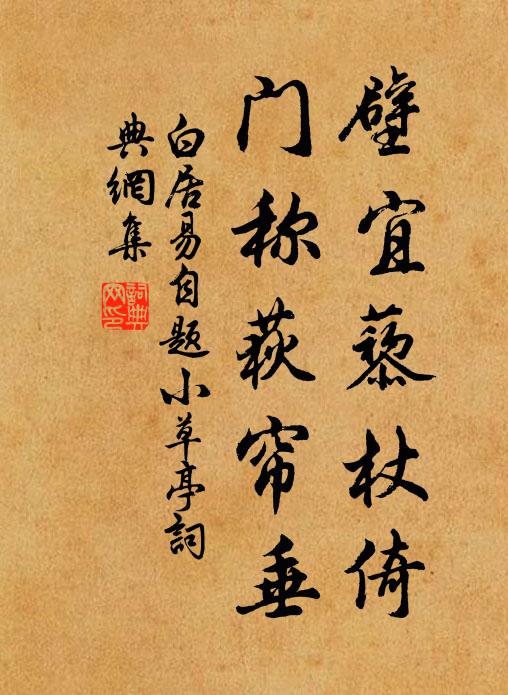 壁宜藜杖倚
门称荻帘垂
白居易自题小草亭詞
典網集
詞典网印